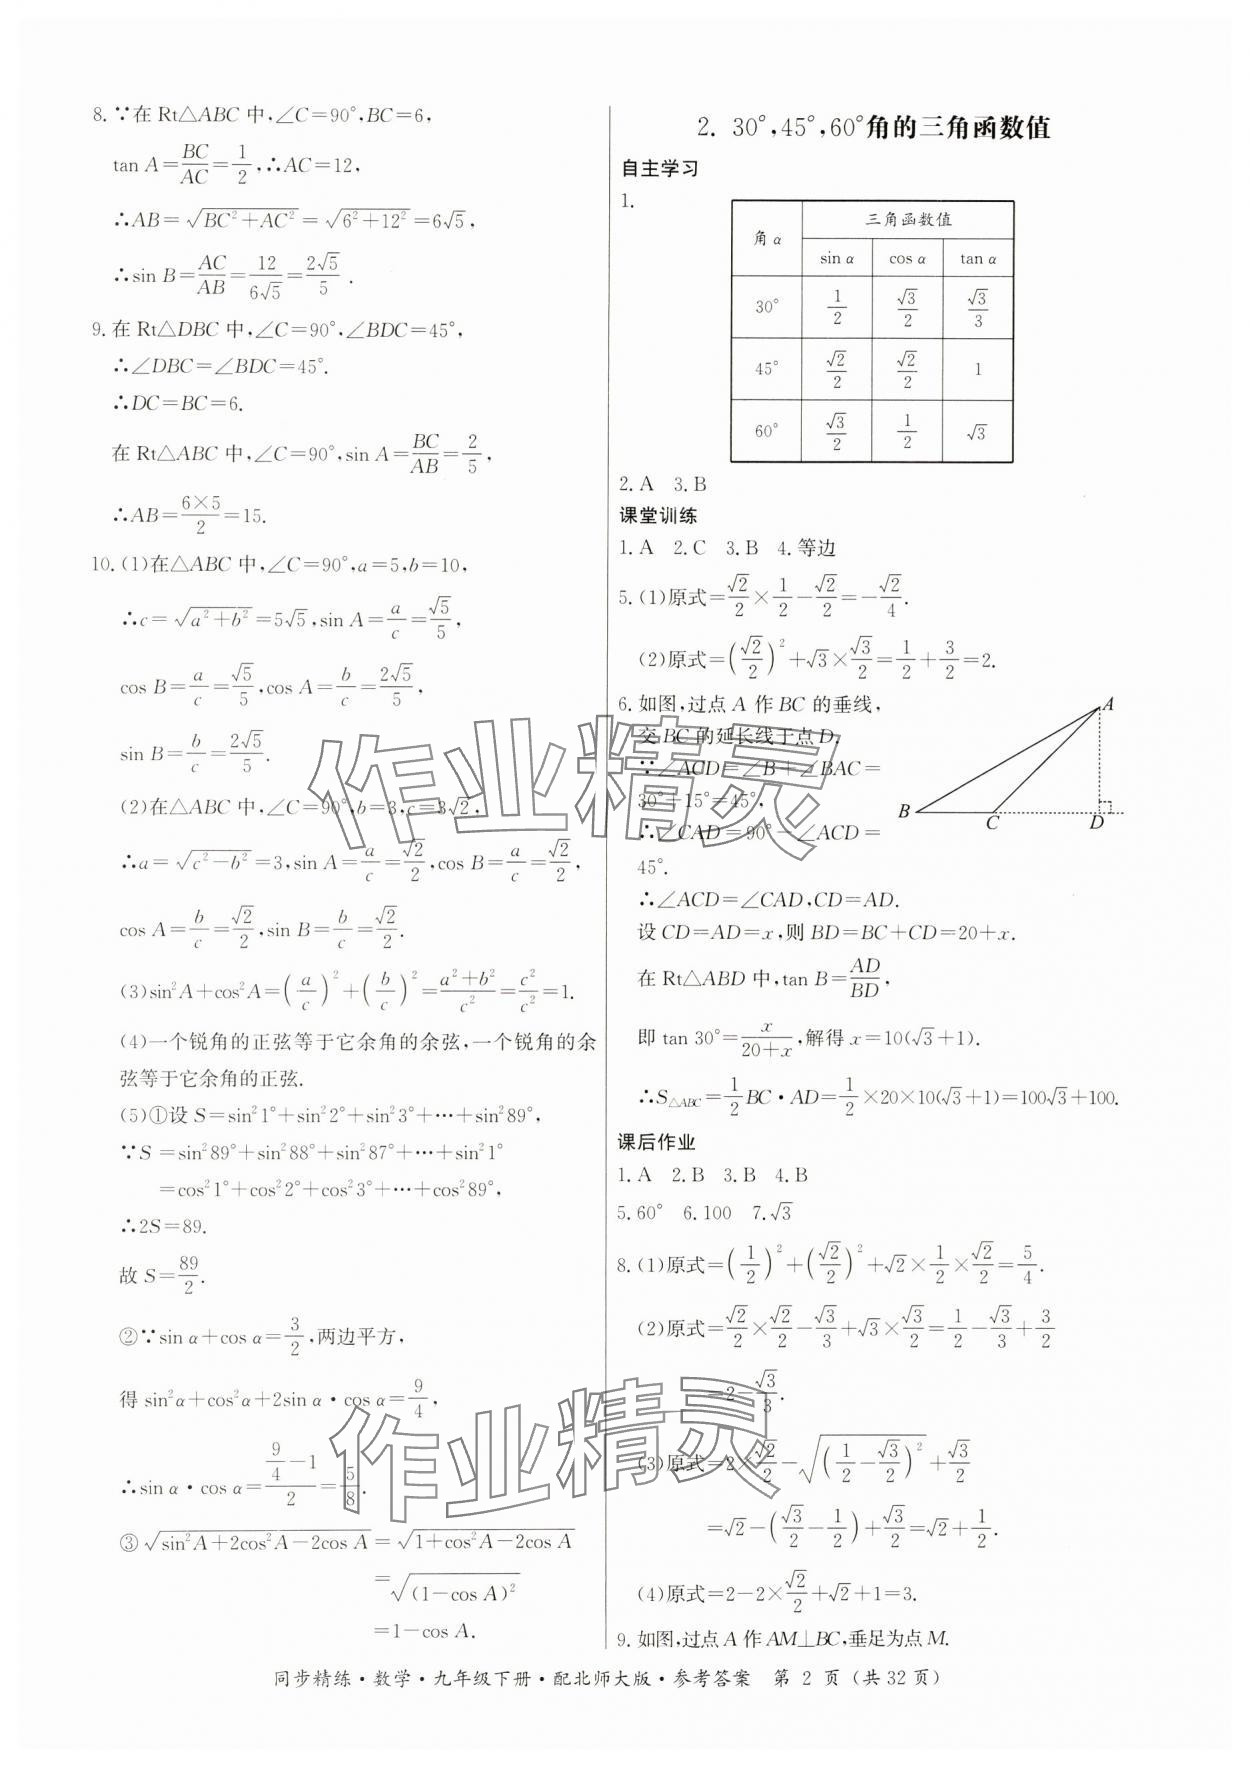 8. ∵在 Rt△ABC 中,∠C=90°,BC=6,
tan A=BC/AC=1/2,∴AC=12,
∴AB=√(BC²+AC²)=√(6²+12²)=6√5,
∴sin B=AC/AB=12/(6√5)=2√5/5.
9. 在 Rt△DBC 中,∠C=90°,∠BDC=45°,
∴∠DBC=∠BDC=45°.
∴DC=BC=6.
在 Rt△ABC 中,∠C=90°,sin A=BC/AB=2/5,
∴AB=(6×5)/2=15.
10. (1)在△ABC 中,∠C=90°,a=5,b=10,
∴c=√(a²+b²)=5√5,sin A=a/c=√5/5,
cos B=a/c=√5/5,cos A=b/c=2√5/5,
sin B=b/c=2√5/5.
(2)在△ABC 中,∠C=90°,b=3,c=3√2,
∴a=√(c²-b²)=3,sin A=a/c=√2/2,cos B=a/c=√2/2,
cos A=b/c=√2/2,sin B=b/c=√2/2.
(3)sin²A+cos²A=(a/c)²+(b/c)²=(a²+b²)/c²=c²/c²=1.
(4)一个锐角的正弦等于它余角的余弦,一个锐角的余
弦等于它余角的正弦.
(5)①设 S=sin²1°+sin²2°+sin²3°+…+sin²89°,
∵S=sin²89°+sin²88°+sin²87°+…+sin²1°
=cos²1°+cos²2°+cos²3°+…+cos²89°,
∴2S=89.
故 S=89/2.
②∵sin α+cos α=3/2,两边平方,
得 sin²α+cos²α+2sin α·cos α=9/4,
∴sin α·cos α=(9/4-1)/2=5/8.
③√(sin²A+2cos²A-2cos A)=√(1+cos²A-2cos A)
=√((1-cos A)²)
=1-cos A.
2. 30°,45°,60°角的三角函数值
自主学习
1.
角 α 三角函数值
sin α cos α tan α
30° 1/2 √3/2 √3/3
45° √2/2 √2/2 1
60° √3/2 1/2 √3
2. A 3. B
课堂训练
1. A 2. C 3. B 4. 等边
5. (1)原式=√2/2×1/2-√2/2=-√2/4.
(2)原式=(√2/2)²+√3×√3/2=1/2+3/2=2.
6. 如图,过点 A 作 BC 的垂线,
交 BC 的延长线于点 D.
∵∠ACD=∠B+∠BAC=
30°+15°=45°,
∴∠CAD=90°-∠ACD=
45°.
A
B C D
∴∠ACD=∠CAD,CD=AD.
设 CD=AD=x,则 BD=BC+CD=20+x.
在 Rt△ABD 中,tan B=AD/BD,
即 tan 30°=x/(20+x),解得 x=10(√3+1).
∴S△ABC=1/2 BC·AD=1/2×20×10(√3+1)=100√3+100.
课后作业
1. A 2. B 3. B 4. B
5. 60° 6. 100 7. √3
8. (1)原式=(1/2)²+(√2/2)²+√2×1/2×√2/2=5/4.
(2)原式=√2/2×√2/2-√3/3+√3×√3/2=1/2-√3/3+3/2
=2-√3/3.
(3)原式=2×√2/2-√((1/2-√3/2)²)+√3/2
=√2-(√3/2-1/2)+√3/2=√2+1/2.
(4)原式=2-2×√2/2+√2+1=3.
9. 如图,过点 A 作 AM⊥BC,垂足为点 M.
同步精练·数学·九年级下册·配北师大版·参考答案 第 2 页(共 32 页)
作业精灵
作业精灵